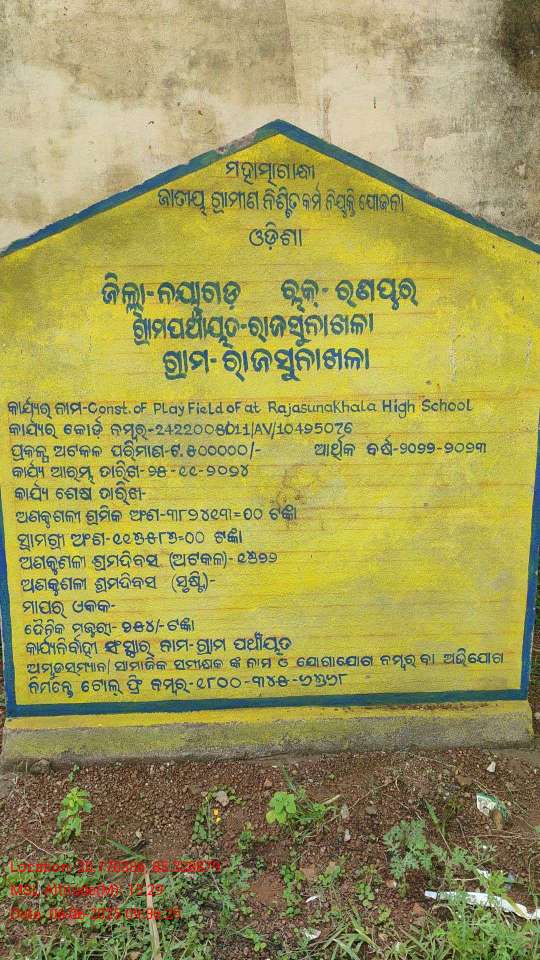 ମହାତ୍ମାଗାନ୍ଧୀ
ଜାତୀୟ ଗ୍ରାମୀଣ ନିଶ୍ଚିତ କର୍ମ ନିଯୁକ୍ତି ଯୋଜନା
ଓଡ଼ିଶା
ଜିଲ୍ଲା-ନୟାଗଡ଼ ବ୍ଲକ୍-ରଣପୁର
ଗ୍ରାମପଞ୍ଚାୟତ-ରାଜସୁନାଖଳା
ଗ୍ରାମ-ରାଜସୁନାଖଳା
କାର୍ଯ୍ୟର ନାମ-Const.of Play Field of at RajasunaKhala High School
କାର୍ଯ୍ୟର କୋର୍ଡ଼ ନମ୍ବର-2422005011/AV/10495076
ପ୍ରକଳ୍ପ ଅଟକଳ ପରିମାଣ-ଟ.୫୦୦୦୦୦/- ଆର୍ଥିକ ବର୍ଷ-୨୦୨୨-୨୦୨୩
କାର୍ଯ୍ୟ ଆରମ୍ଭ ତାରିଖ-୨୫-୧୧-୨୦୨୪
କାର୍ଯ୍ୟ ଶେଷ ତାରିଖ-
ଅଣକୁଶଳୀ ଶ୍ରମିକ ଅଂଶ-୩୮୨୪୧୩=୦୦ ଟଙ୍କା
ସାମଗ୍ରୀ ଅଂଶ-୧୧୬୫୮୬=୦୦ ଟଙ୍କା
ଅଣକୁଶଳୀ ଶ୍ରମଦିବସ (ଅଟକଳ)-୧୬୨୨
ଅଣକୁଶଳୀ ଶ୍ରମଦିବସ (ସୃଷ୍ଟି)-
ମାପର ଓକକ-
ଦୈନିକ ମଜୁରୀ-୨୫୪/-ଟଙ୍କା
କାର୍ଯ୍ୟନିର୍ବାହୀ ସଂସ୍ଥାର ନାମ-ଗ୍ରାମ ପଞ୍ଚାୟତ
ଅମ୍ବୁଡସମ୍ୟାନ/ସାମାଜିକ ସମୀକ୍ଷକ ଙ୍କ ନାମ ଓ ଯୋଗାଯୋଗ ନମ୍ବର ବା ଅଭିଯୋଗ
ନିମନ୍ତେ ଟୋଲ୍ ଫ୍ରି ନମ୍ବର-୧୮୦୦-୩୪୫-୬୬୬୮